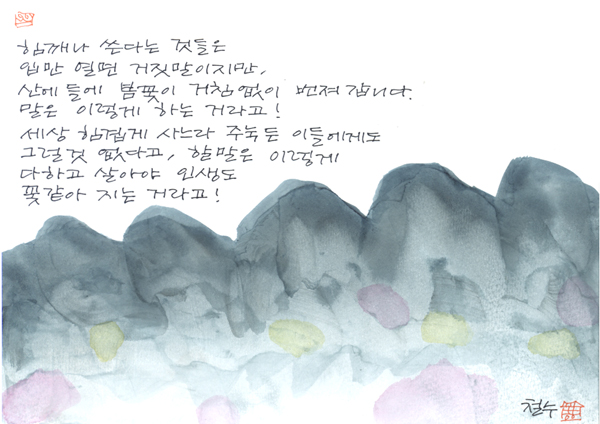 힘깨나 쓴다는 것들은
입만 열면 거짓말이지만,
산에 들에 봄꽃이 거침없이 번져 갑니다.
말은 이렇게 하는 거라고!
세상 힘겹게 사느라 주눅든 이들에게도
그럴것 없다고, 할말은 이렇게
다하고 살아야 인생도
꽃같아 지는 거라고!
철수